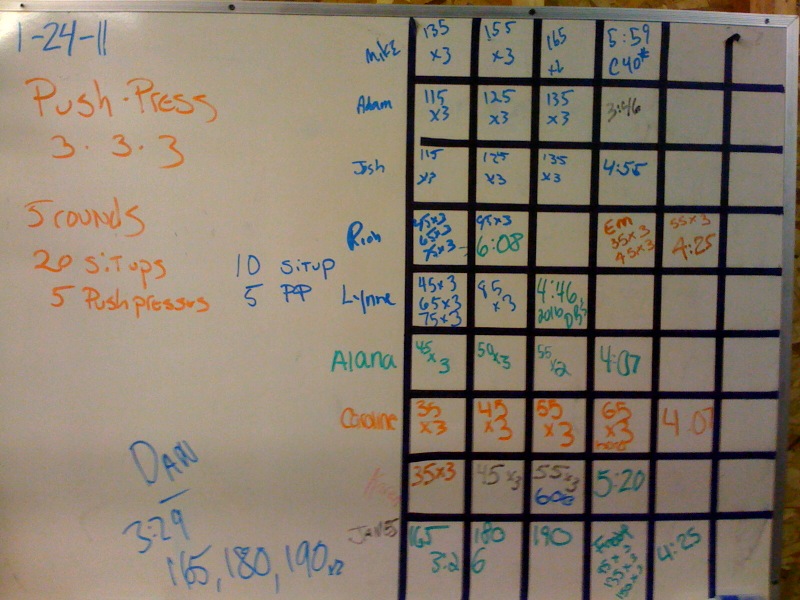 1-24-11
Push-Press
3 · 3 · 3
5 rounds
20 situps
5 Pushpresses
10 situp
5 PP
DAN
3:29
165, 180, 190 x2
Mike 135 x3 155 x3 165 5:59 C40#
Adam 115 x3 125 x3 135 x3 3:46
Josh 115 x3 125 x3 135 x3 4:55
45x3 65x3 75x3 95x3 6:08 Em 35x3 45x3 55x3 4:25
Lynne 45x3 65x3 75x3 85 x3 4:46 20lb DB's
Alana 45 x3 50x3 55 x2 4:07
Caroline 35 x3 45 x3 55 x3 65 x3 4:07
35x3 45x3 55x3 5:20
165 180 190 4:25
3:26